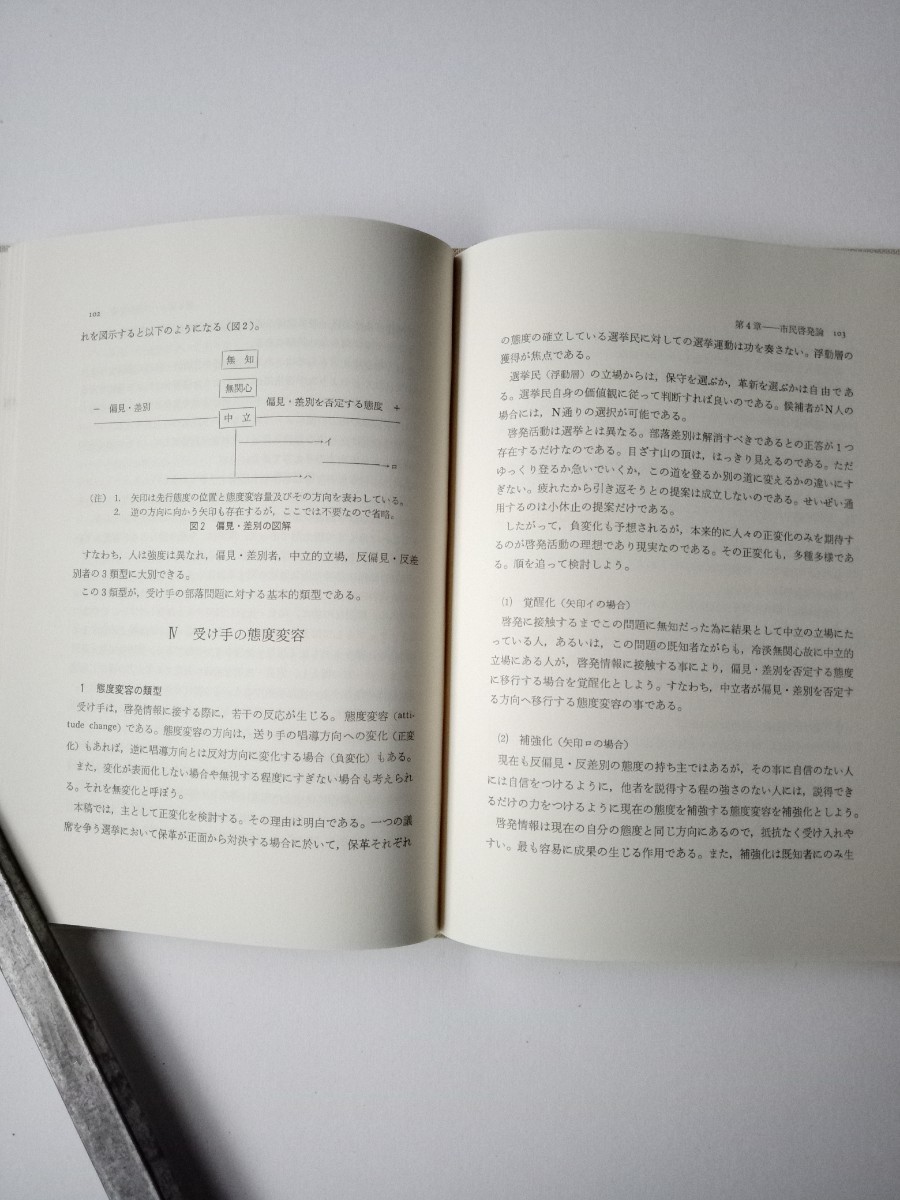 102
れを図示すると以下のようになる（図2）。
無　知
無関心
－　偏見・差別
中　立
偏見・差別を否定する態度　＋
イ
ロ
（注）1.　矢印は先行態度の位置と態度変容量及びその方向を表わしている。
2.　逆の方向に向かう矢印も存在するが，ここでは不要なので省略。
図2　偏見・差別の図解
すなわち，人は強度は異なれ，偏見・差別者，中立的立場，反偏見・反差
別者の3類型に大別できる。
この3類型が，受け手の部落問題に対する基本的類型である。
Ⅳ　受け手の態度変容
1　態度変容の類型
受け手は，啓発情報に接する際に，若干の反応が生じる。態度変容（atti-
tude change）である。態度変容の方向は，送り手の唱導方向への変化（正変
化）もあれば，逆に唱導方向とは反対方向に変化する場合（負変化）もある。
また，変化が表面化しない場合や無視する程度にすぎない場合も考えられ
る。それを無変化と呼ぼう。
本稿では，主として正変化を検討する。その理由は明白である。一つの議
席を争う選挙において保革が正面から対決する場合に於いて，保革それぞれ
第4章――市民啓発論　103
の態度の確立している選挙民に対しての選挙運動は功を奏さない。浮動層の
獲得が焦点である。
選挙民（浮動層）の立場からは，保守を選ぶか，革新を選ぶかは自由であ
る。選挙民自身の価値観に従って判断すれば良いのである。候補者がN人の
場合には，N通りの選択が可能である。
啓発活動は選挙とは異なる。部落差別は解消すべきであるとの正答が1つ
存在するだけなのである。目ざす山の頂は，はっきり見えるのである。ただ
ゆっくり登るか急いでいくか，この道を登るか別の道に変えるかの違いにす
ぎない。疲れたから引き返そうとの提案は成立しないのである。せいぜい通
用するのは小休止の提案だけである。
したがって，負変化も予想されるが，本来的に人々の正変化のみを期待す
るのが啓発活動の理想であり現実なのである。その正変化も，多種多様であ
る。順を追って検討しよう。
(1)　覚醒化（矢印イの場合）
啓発に接触するまでこの問題に無知だった為に結果として中立の立場にた
っている人，あるいは，この問題の既知者ながらも，冷淡無関心故に中立的
立場にある人が，啓発情報に接触する事により，偏見・差別を否定する態度
に移行する場合を覚醒化としよう。すなわち，中立者が偏見・差別を否定す
る方向へ移行する態度変容の事である。
(2)　補強化（矢印ロの場合）
現在も反偏見・反差別の態度の持ち主ではあるが，その事に自信のない人
には自信をつけるように，他者を説得する程の強さのない人には，説得でき
るだけの力をつけるように現在の態度を補強する態度変容を補強化としよう。
啓発情報は現在の自分の態度と同じ方向にあるので，抵抗なく受け入れや
すい。最も容易に成果の生じる作用である。また，補強化は既知者にのみ生